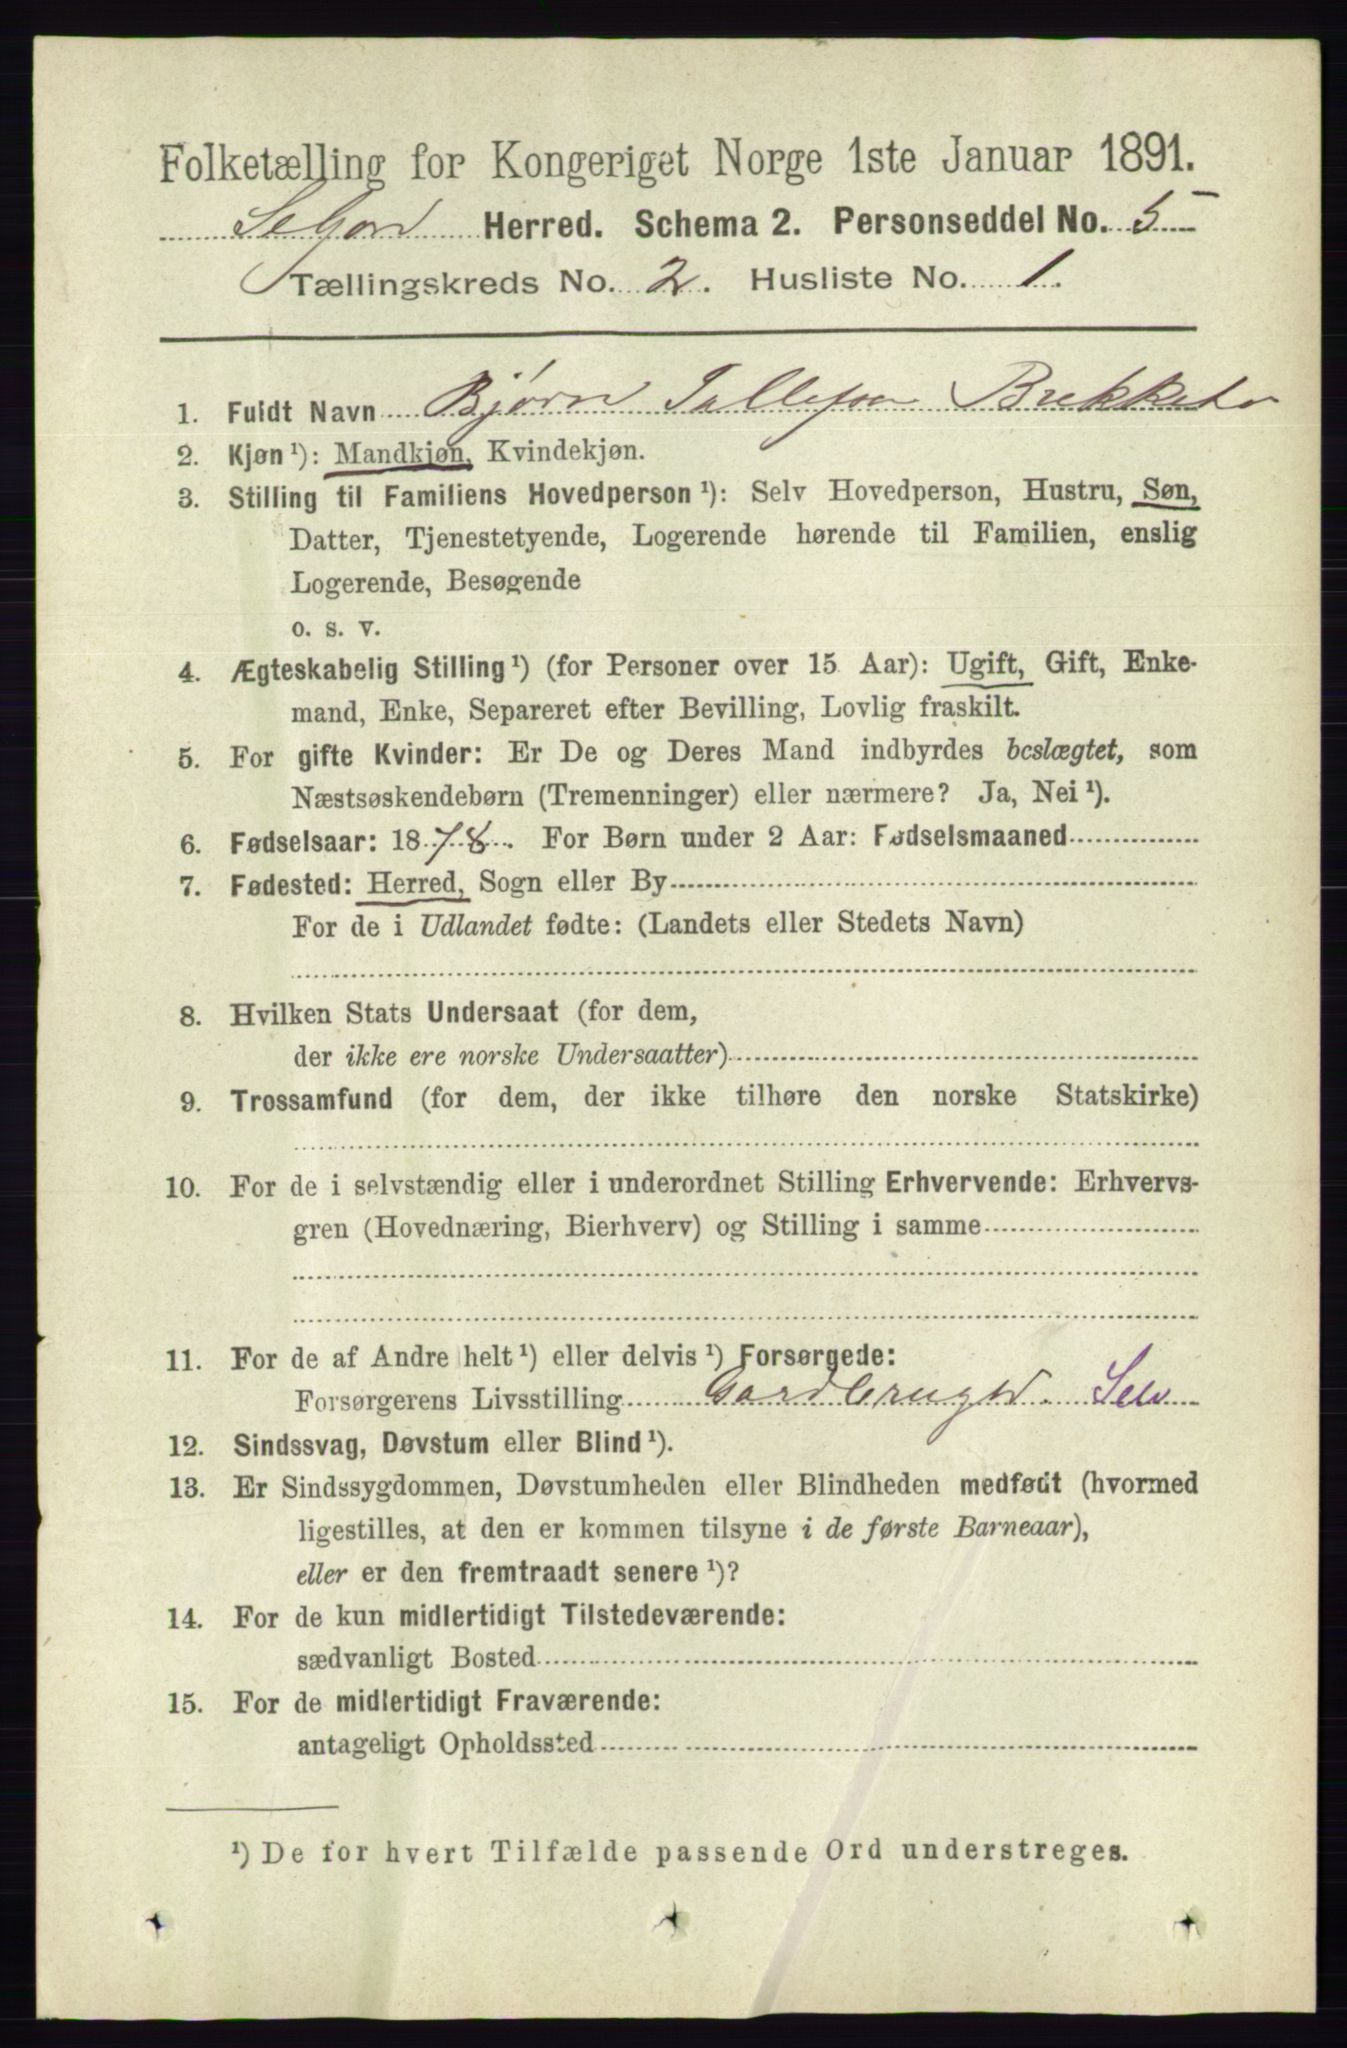 Folketælling for Kongeriget Norge 1ste Januar 1891.
Seljord Herred. Schema 2. Personseddel No. 5
Tællingskreds No. 2. Husliste No. 1.
1. Fuldt Navn Bjørn Tallefsen
2. Kjøn ¹): Mandkjøn, Kvindekjøn.
3. Stilling til Familiens Hovedperson ¹): Selv Hovedperson, Hustru, Søn,
Datter, Tjenestetyende, Logerende hørende til Familien, enslig
Logerende, Besøgende
o. s. v.
4. Ægteskabelig Stilling ¹) (for Personer over 15 Aar): Ugift, Gift, Enke-
mand, Enke, Separeret efter Bevilling, Lovlig fraskilt.
5. For gifte Kvinder: Er De og Deres Mand indbyrdes beslægtet, som
Næstsøskendebørn (Tremenninger) eller nærmere? Ja, Nei ¹).
6. Fødselsaar: 1878. For Børn under 2 Aar: Fødselsmaaned
7. Fødested: Herred, Sogn eller By
For de i Udlandet fødte: (Landets eller Stedets Navn)
8. Hvilken Stats Undersaat (for dem,
der ikke ere norske Undersaatter)
9. Trossamfund (for dem, der ikke tilhøre den norske Statskirke)
10. For de i selvstændig eller i underordnet Stilling Erhvervende: Erhvervs-
gren (Hovednæring, Bierhverv) og Stilling i samme
11. For de af Andre helt ¹) eller delvis ¹) Forsørgede:
Forsørgerens Livsstilling Gardbruger. Selv
12. Sindssvag, Døvstum eller Blind ¹).
13. Er Sindssygdommen, Døvstumheden eller Blindheden medfødt (hvormed
ligestilles, at den er kommen tilsyne i de første Barneaar),
eller er den fremtraadt senere ¹)?
14. For de kun midlertidigt Tilstedeværende:
sædvanligt Bosted
15. For de midlertidigt Fraværende:
antageligt Opholdssted
¹) De for hvert Tilfælde passende Ord understreges.